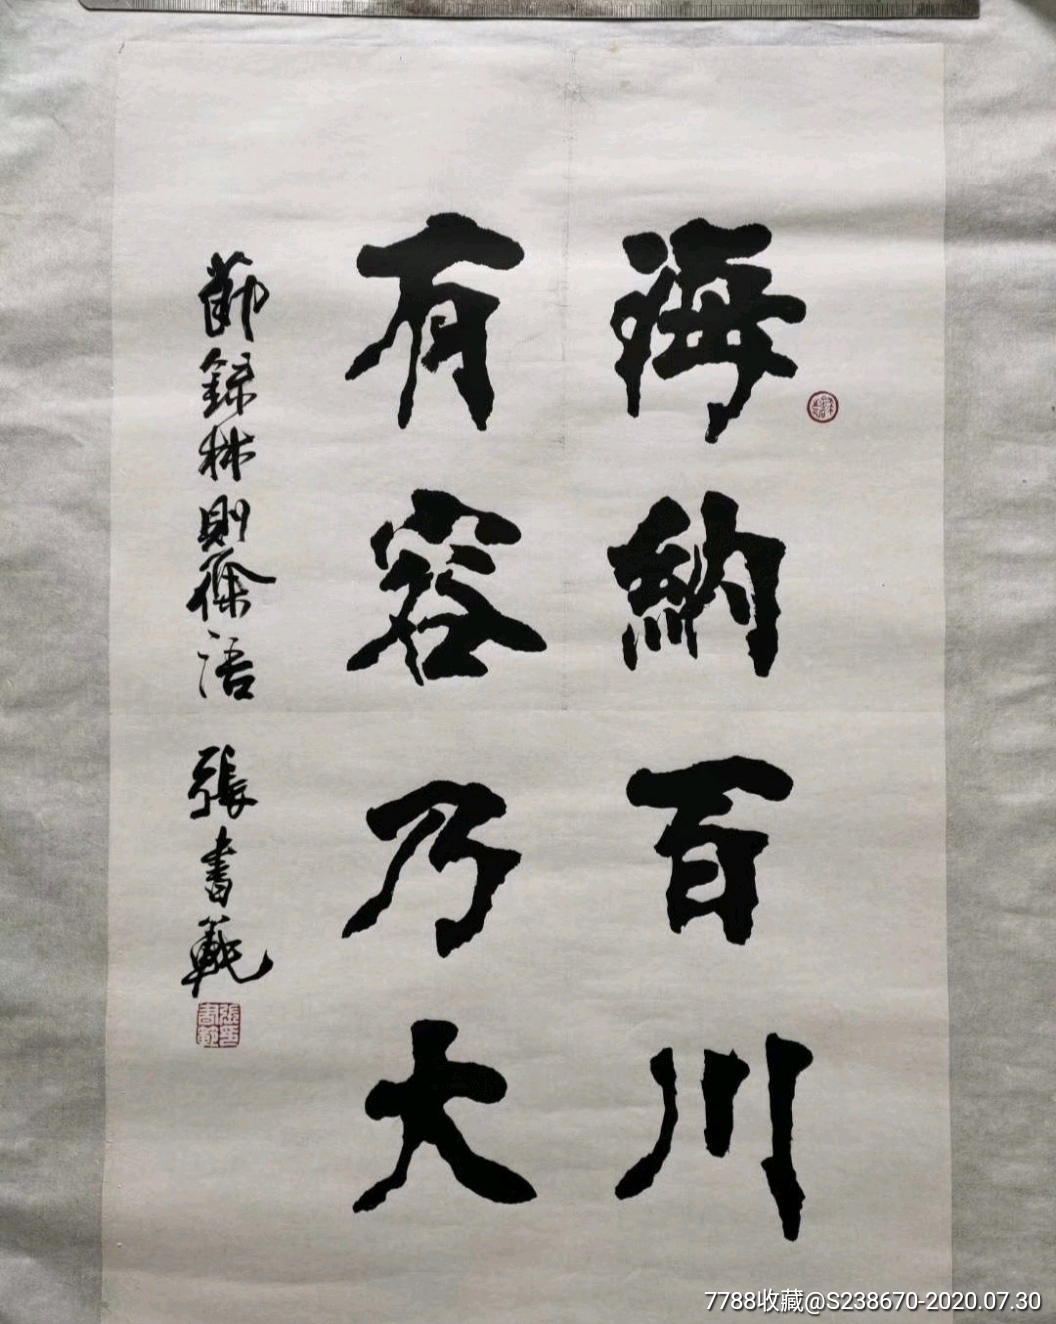 海納百川
有容乃大
節録林則徐語 張書範
張書範
7788收藏@S238670-2020.07.30